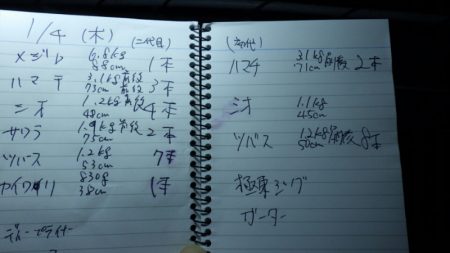 1/4 (木) (二代目)
メジロ 6.8kg 88cm 1本
ハマチ 3.1kg前後 73cm 3本
シオ 1.2kg前後 48cm 4本
サワラ 1.9kg前後 75cm 2本
ツバス 1.2kg 53cm 7本
カイワリ 830g 38cm 1本
(初代)
ハマチ 3.1kg前後 71cm 2本
シオ 1.1kg 45cm
ツバス 1.2kg前後 50cm 8本
極東ジグ
ガーター